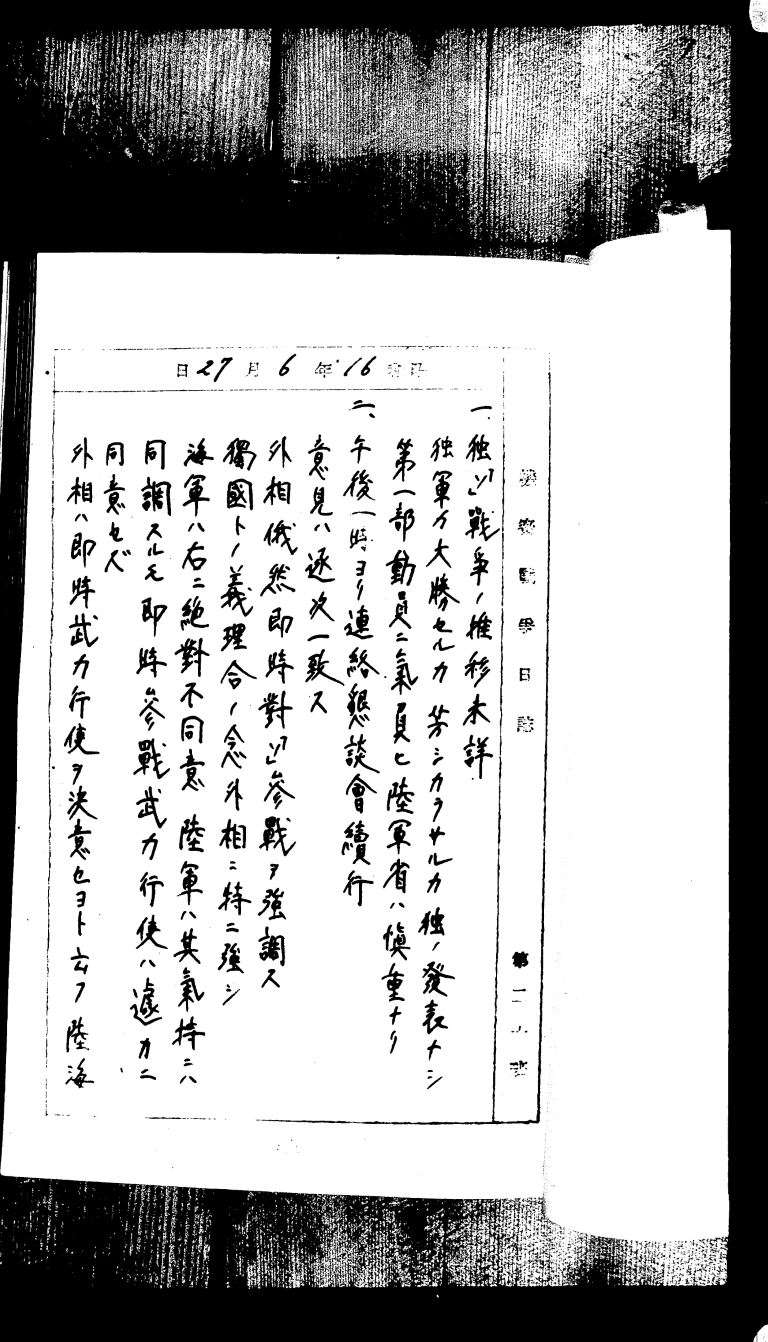 機密戰爭日誌 第二六班
昭和16年6月27日
一、独「ソ」戰爭ノ推移未詳
独軍ガ大勝セルカ 芳シカラサルカ 独ノ發表ナシ
第一部動員ニ氣負ヒ陸軍省ハ愼重ナリ
二、午後一時ヨリ連絡懇談會續行
意見ハ逐次一致ス
外相俄然即時對「ソ」參戰ヲ強調ス
獨國トノ義理合ノ念外相ニ特ニ強シ
海軍ハ右ニ絶對不同意 陸軍ハ其氣持ニハ
同調スルモ即時參戰武力行使ハ遽カニ
同意セズ
外相ハ即時武力行使ヲ決意セヨト云フ 陸海